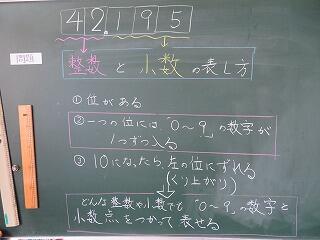 42.195
問題
整数と小数の表し方
①位がある
②一つの位には、「0～9」の数字が
1つずつ入る
③10になったら左の位にずれる
(くり上がり)
どんな整数や小数でも「0～9」の数字と
小数点をつかって表せる